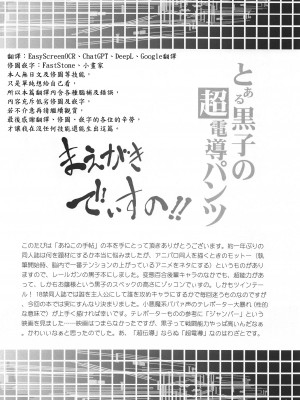 翻譯：EasyScreenOCR、ChatGPT、DeepL、Google翻譯
修圖嵌字：FastStone、小畫家
本人無日文及修圖等技能，
只是單純想給自己看，
所以本篇翻譯內含各種腦補及錯誤，
內容充斥低劣修圖及嵌字，
若不介意再請繼續觀賞，
最後感謝翻譯、修圖、嵌字的各位的辛勞，
才讓我在沒任何技能還能生出這篇，
とある黒子の
超電導パンツ
まえがき
でぃすの!!
このたびは「あねこの手帖」の本を手にとって頂きありがとうございます。約一年ぶりの
同人誌は何を題材にするか本当に悩みましたが、アニパロ同人を描くときのモットー（執
筆開始時、脳内で一番テンションの上がっているアニメをネタにする）というものがあり
ますので、レールガンの黒子本にしました。変態百合後輩キャラのなかでも、超能力があ
って、しかもお嬢様という黒子のスペックの高さにゾッコンでぃすの。しかしツインテー
ル！18禁同人誌では誰を主人公にして誰を攻めキャラにするかで毎回迷うものなのですが、
今回の本では実行しやすかったです。小悪魔系ババァ声のテレポーター大暴れ（性的
な意味で）が上手く描ければ幸いです。テレポーターものの参考に「ジャンパー」という
映画を見ました……映画はつまらなかったですが、黒子って戦闘能力やっぱ高いんだなぁ。
かわいいなぁと思ったのでした。あ、「超伝導」ならぬ「超電導」なのはわざとです。